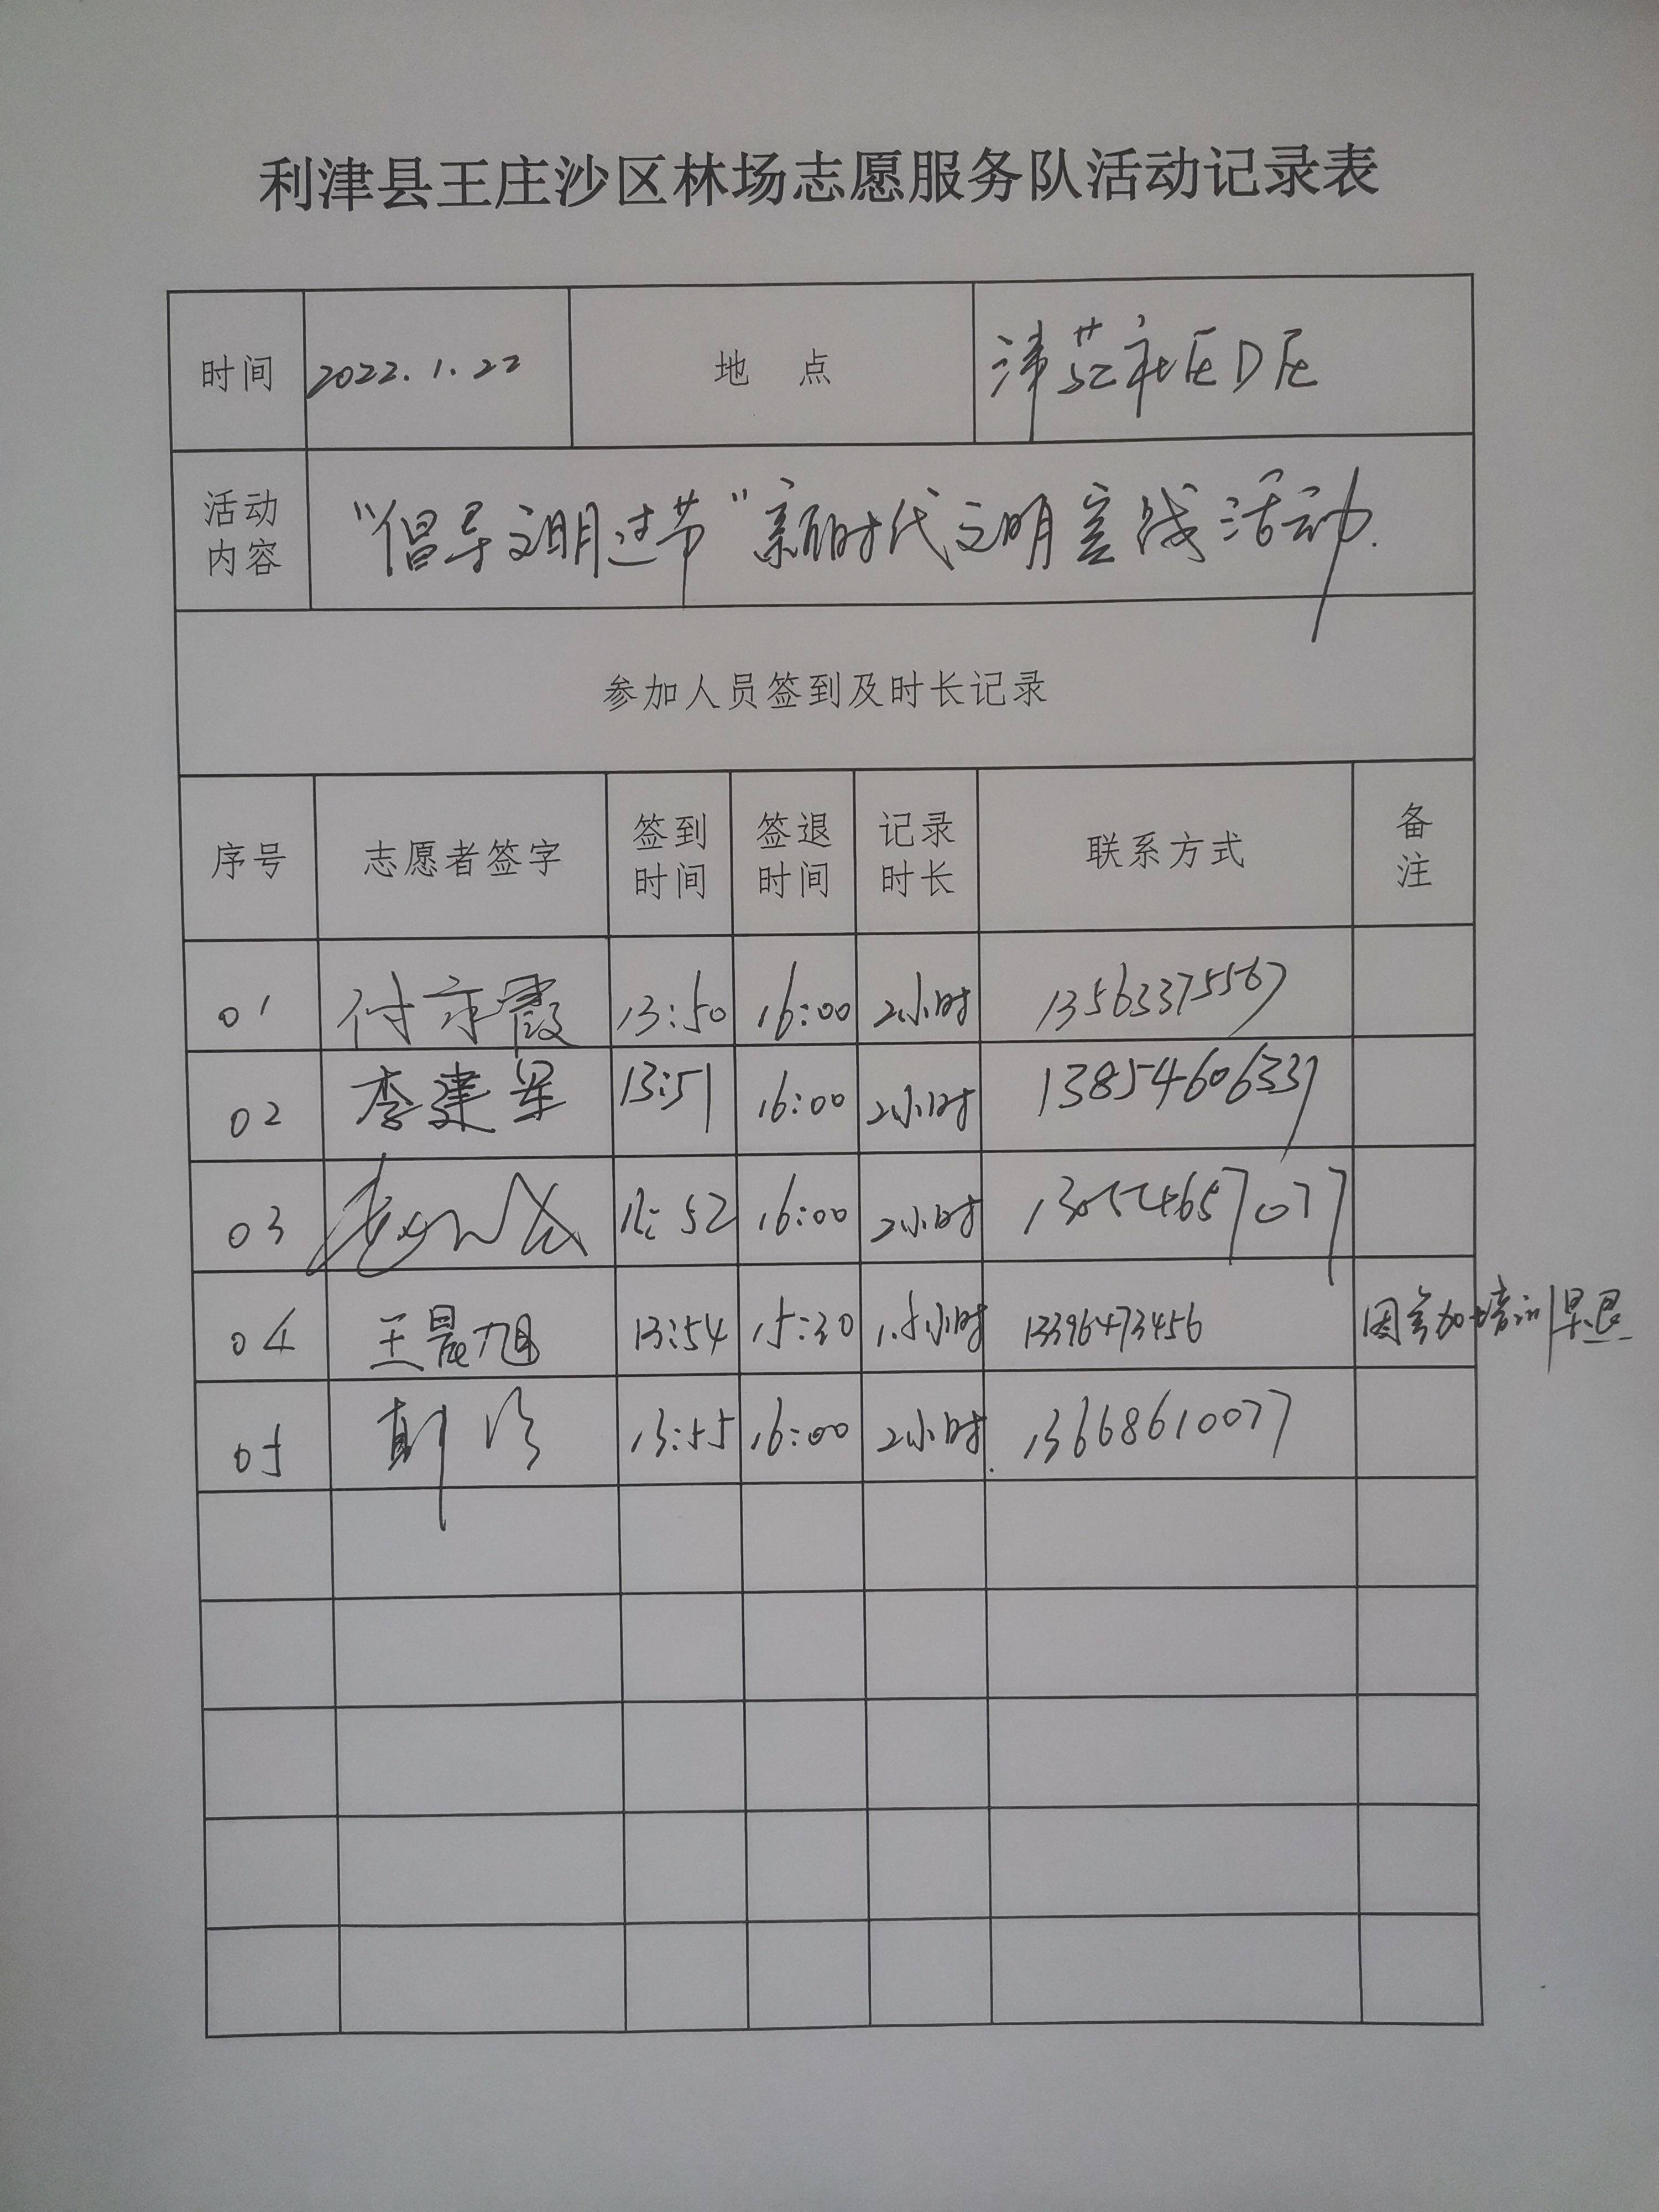 利津县王庄沙区林场志愿服务队活动记录表
时间 2022.1.22 地 点 津苑社区D区
活动内容 “倡导文明过节”新时代文明实践活动.
参加人员签到及时长记录
序号 志愿者签字 签到时间 签退时间 记录时长 联系方式 备注
01 付 霞 13:50 16:00 2小时 13563375567
02 李建军 13:51 16:00 2小时 13854606337
03 13:52 16:00 2小时 13054657077
04 王晨旭 13:54 15:30 1.5小时 13396473456 因参加培训早退
05 13:55 16:00 2小时 13668610077